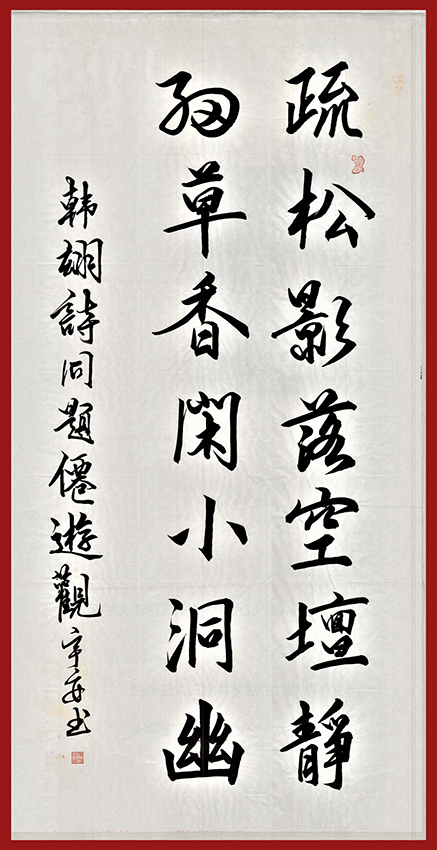 疏松影落空壇靜
細草香閑小洞幽
韩翃詩同題僊遊觀
书